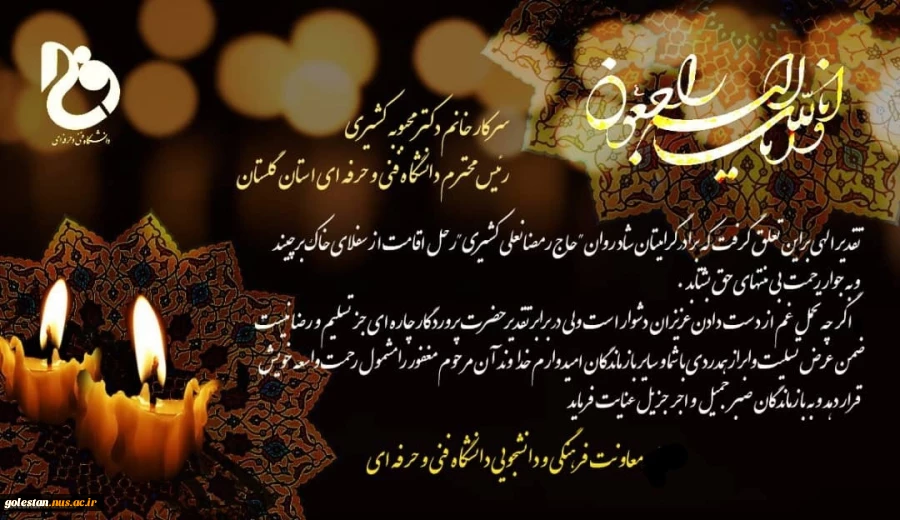 انا لله و انا الیه راجعون
دانشگاه فنی و حرفه ای
سرکار خانم دکتر محبوبه کشیری
رئیس محترم دانشگاه فنی و حرفه ای استان گلستان
تقدیر الهی بر این تعلق گرفت که برادر گرامیتان شادروان "حاج رمضانعلی کشیری" رحل اقامت از سفلای خاک برچیند
و به جوار رحمت بی منتهای حق بشتابد .
اگر چه تحمل غم از دست دادن عزیزان دشوار است ولی در برابر تقدیر حضرت پروردگار چاره ای جز تسلیم و رضا نیست
ضمن عرض تسلیت و ابراز همدردی با شما و سایر بازماندگان امیدوارم خداوند آن مرحوم مغفور را مشمول رحمت واسعه خویش
قرار دهد و به بازماندگان صبر جمیل و اجر جزیل عنایت فرماید
معاونت فرهنگی و دانشجویی دانشگاه فنی و حرفه ای
golestan.nus.ac.ir